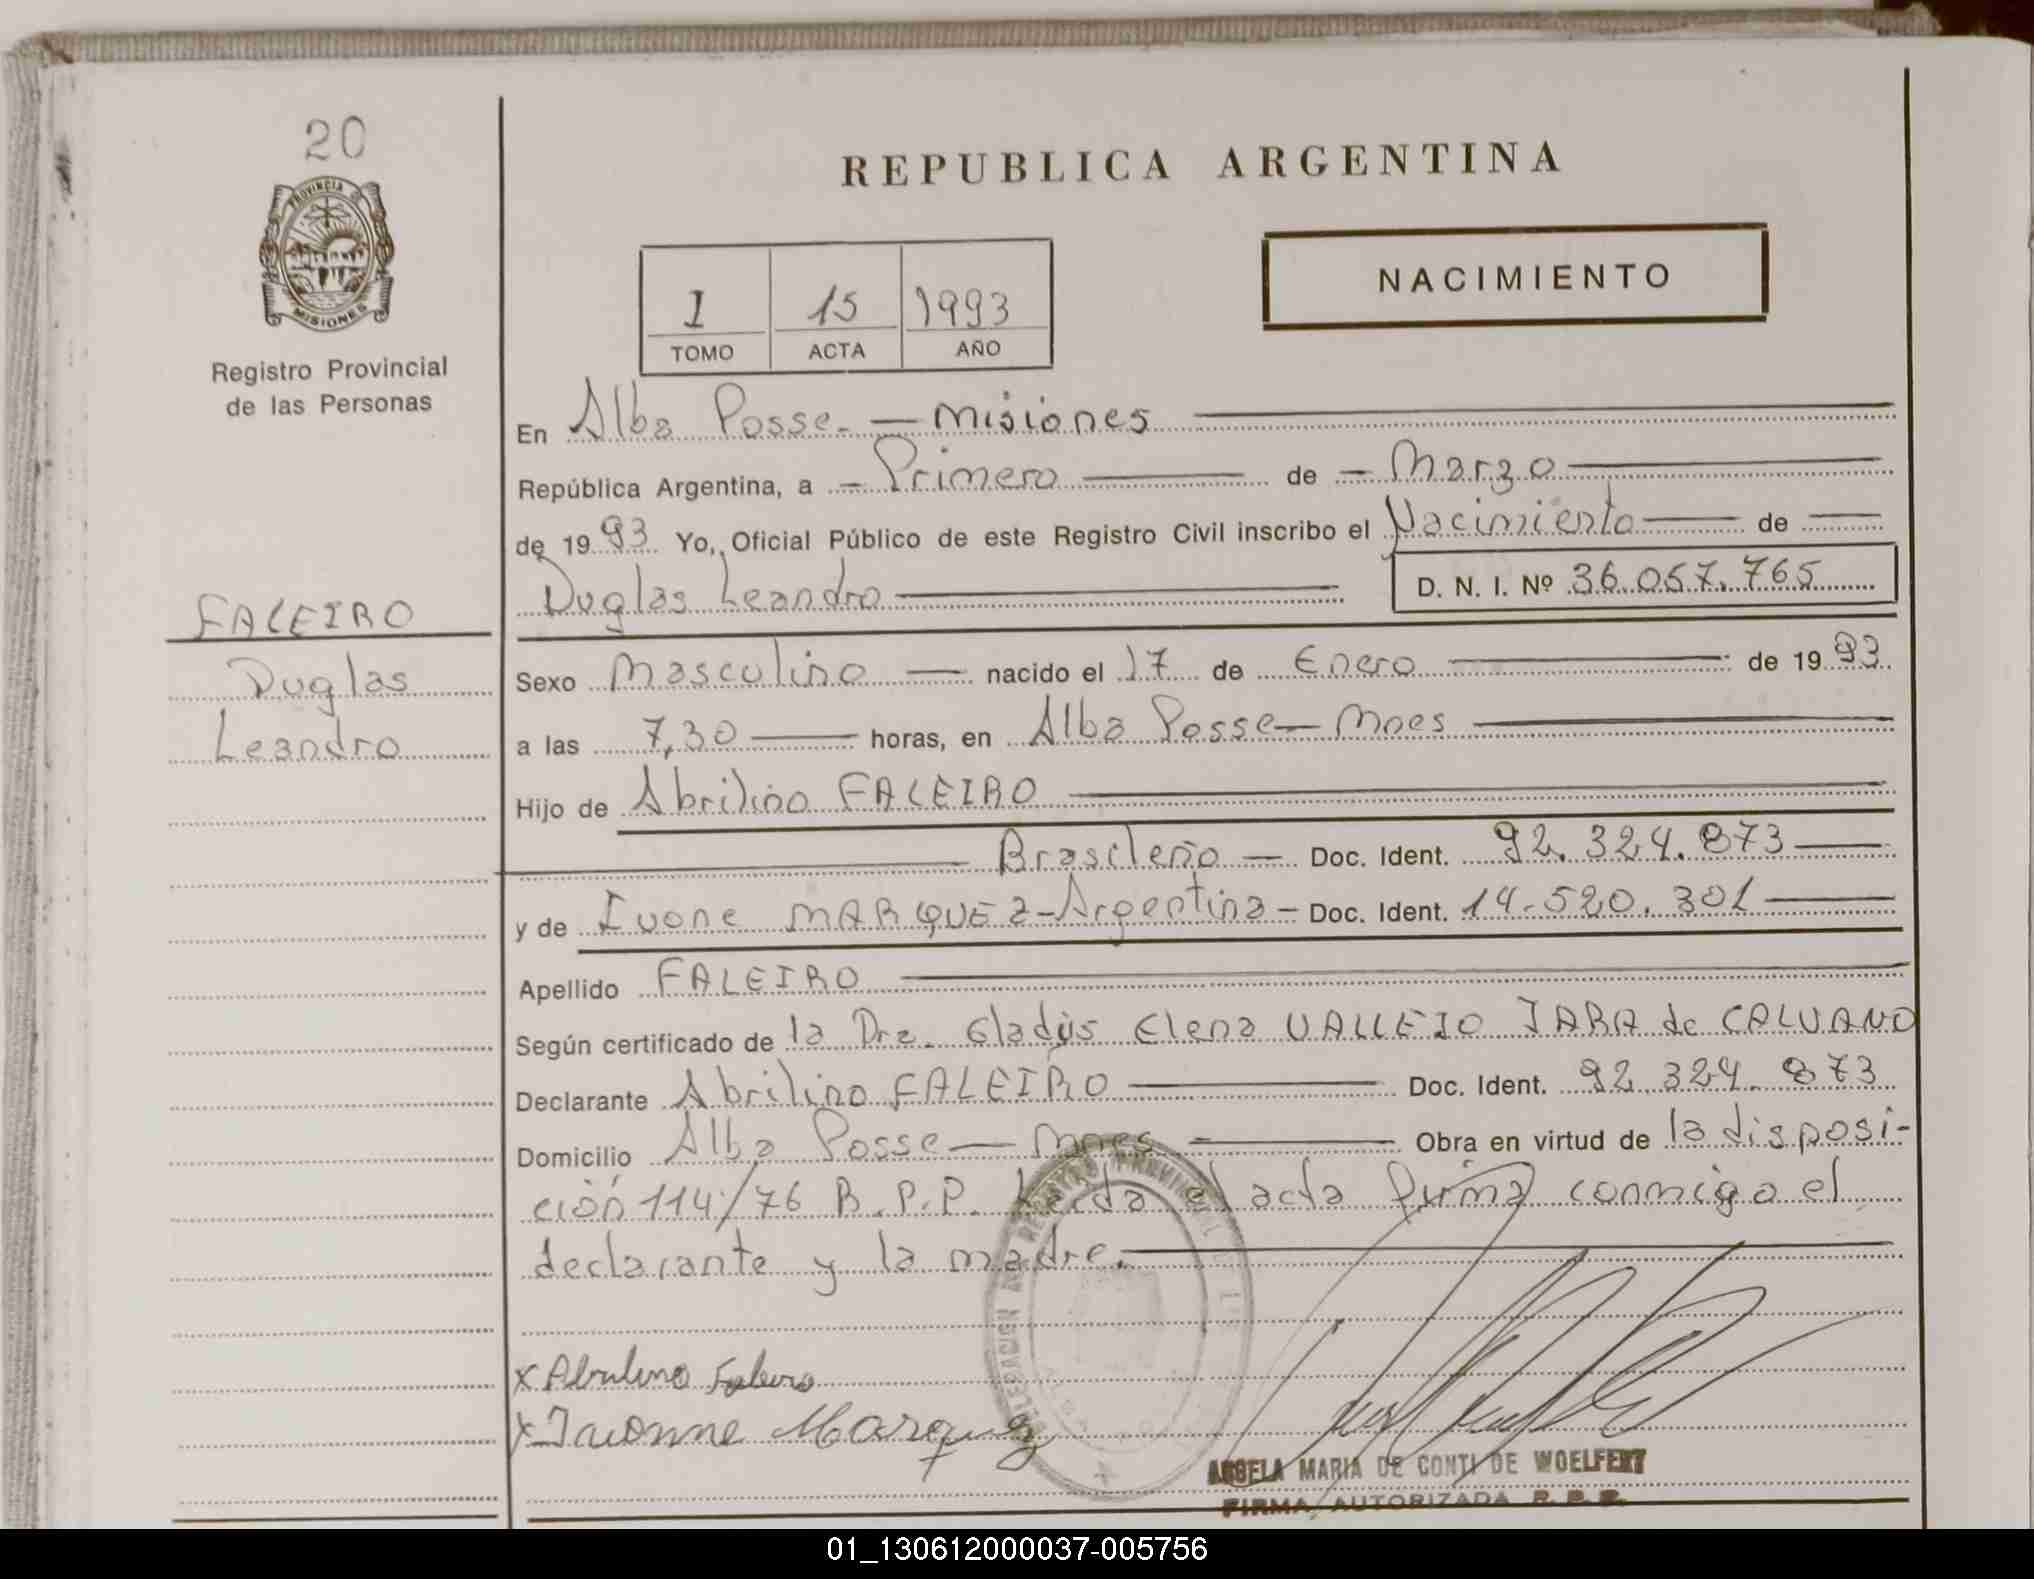 20
PROVINCIA DE
MISIONES
Registro Provincial
de las Personas
REPUBLICA ARGENTINA
I 15 1993
TOMO ACTA AÑO
NACIMIENTO
En Alba Posse. — Misiones
República Argentina, a — Primero — de — Marzo
de 1993 Yo, Oficial Público de este Registro Civil inscribo el Nacimiento — de —
Duglas Leandro — D. N. I. Nº 36.057.765
FALEIRO
Duglas
Leandro
Sexo Masculino — nacido el 17 de Enero — de 1993
a las 7,30 — horas, en Alba Posse — Mnes
Hijo de Abrilino FALEIRO
— Brasileño — Doc. Ident. 92.324.873 —
y de Ivone MARQUEZ - Argentina - Doc. Ident. 14.520.301 —
Apellido FALEIRO
Según certificado de la Dra. Gladys Elena VALLEJO JARA de CALVANO
Declarante Abrilino FALEIRO — Doc. Ident. 92.324.873
Domicilio Alba Posse — Mnes — Obra en virtud de la disposi-
ción 114/76 R.P.P. Leída el acta firma conmigo el
declarante y la madre.
x Abrilino Faleiro
x Ivonne Marquez
ANGELA MARIA DE CONTI DE WOELFERT
FIRMA AUTORIZADA R. P. P.
01_130612000037-005756